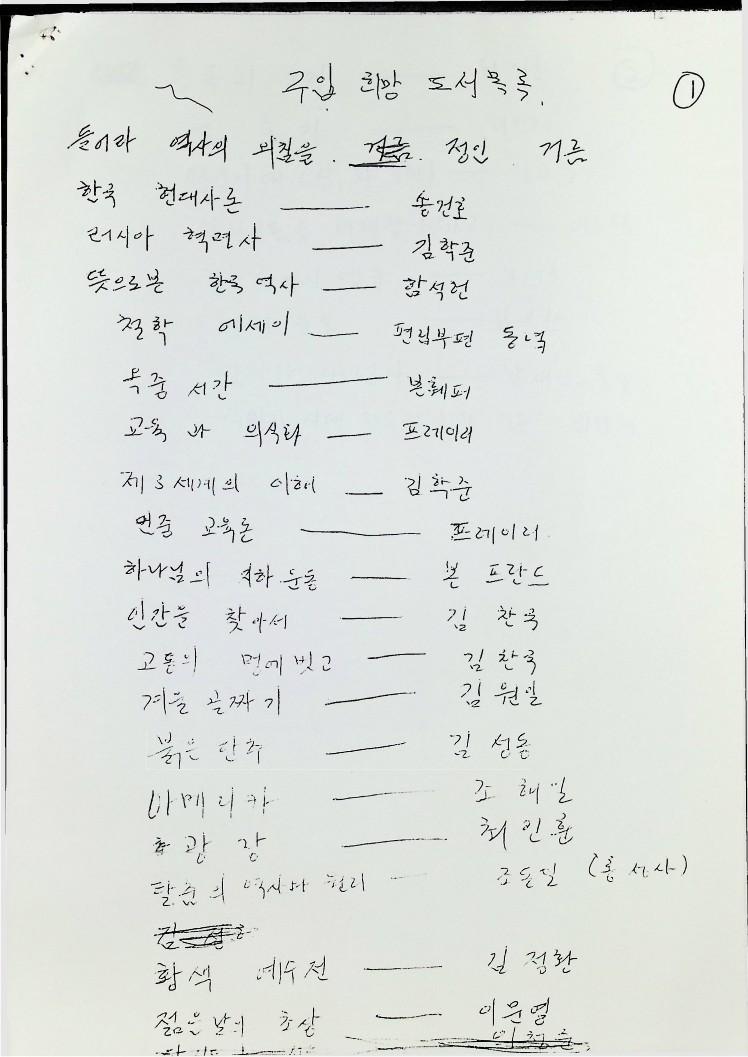 구입 희망 도서목록
①
들어라 역사의 외침을. 정인 거름
한국 현대사론 — 송건호
러시아 혁명사 — 김학준
뜻으로본 한국역사 — 함석헌
철학 에세이 — 편집부편 동녘
옥중 서간 — 본훼퍼
교육과 의식화 — 프레이리
제3세계의 이해 — 김학준
민중 교육론 — 프레이리
하나님의 지하운동 — 본 프란드
인간을 찾아서 — 김찬국
고통의 멍에벗고 — 김찬국
겨울 골짜기 — 김원일
붉은 단추 — 김성동
아메리카 — 조해일
광장 — 최인훈
탈춤의 역사와 원리 — 조동일 (홍성사)
황색 예수전 — 김정환
젊은날의 초상 — 이문열